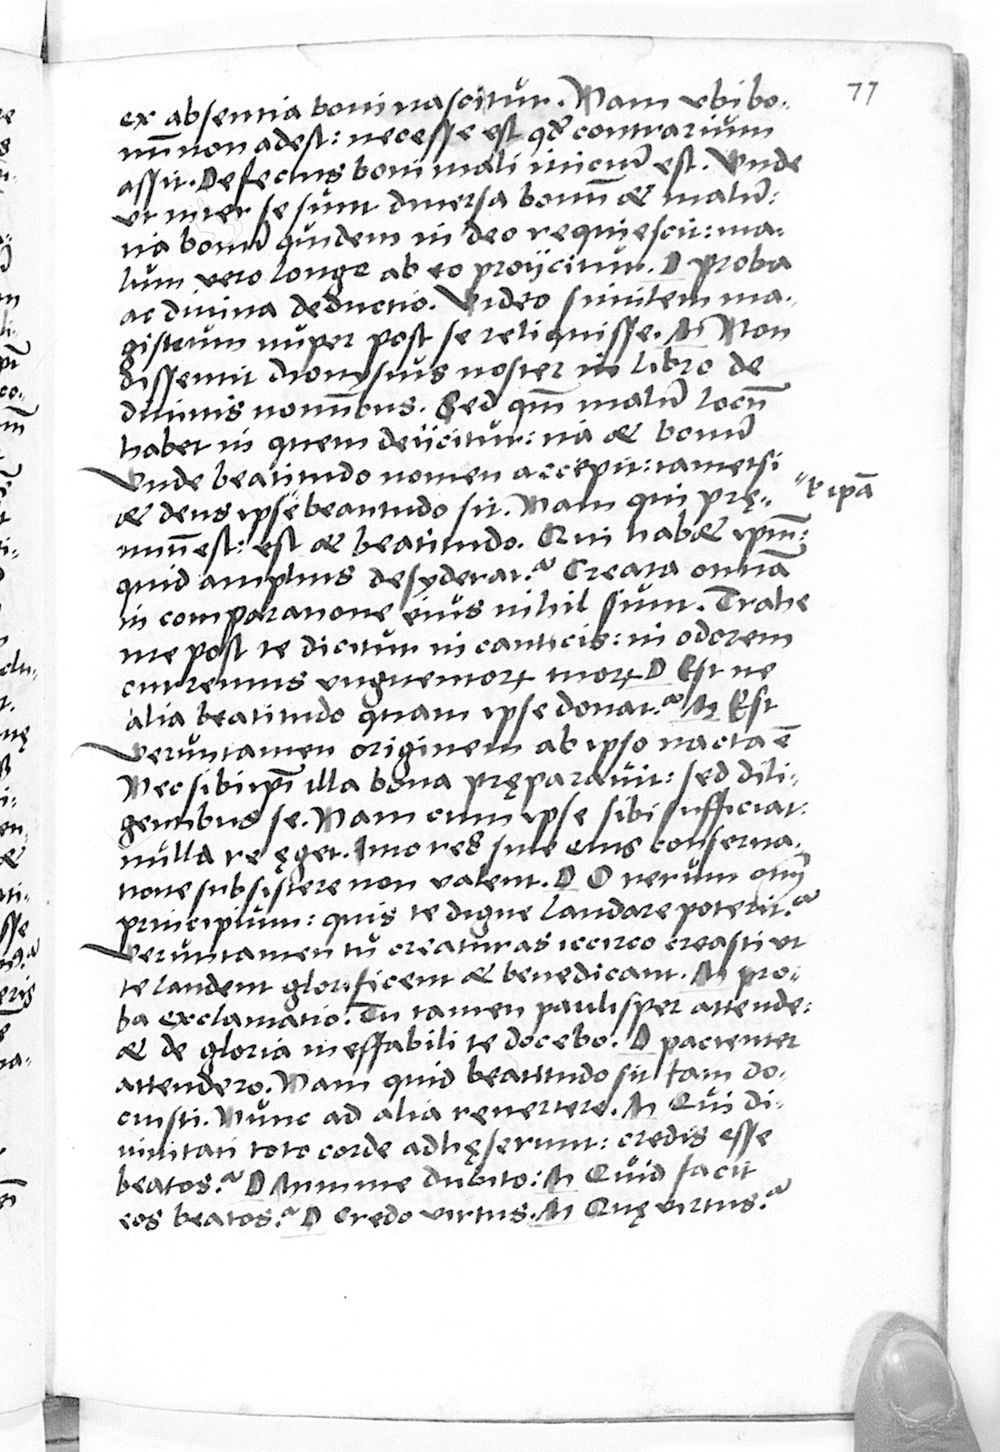 77
ex absentia boni nascitur. Nam vbi bo-
nũ non adest: necesse est qd̃ contrarium
assit. Defectus boni mali initiũ est. Vnde
vt inter se sunt diuersa bonũ & malũ:
nã bonũ quidem in deo requiescit: ma-
lum vero longe ab eo proijcitur. D proba
ac diuina deductio. Video similem ma-
gistrum nuper post se reliquisse. M Non
dissentit dionysius noster in libro de
diuinis nominibus. Sed qm̃ malũ locũ
habet in quem deijcitur: nã & bonũ
Vnde beatitudo nomen accepit: tametsi
" & ipã
& deus ipse beatitudo sit. Nam qui prę-
miũ est: est & beatitudo. Qui habet ipm̃:
quid amplius desyderat? Creata omnã
in comparatione eius nihil sunt. Trahe
me post te dicitur in canticis: in odorem
curremus vnguentoꝝ tuoꝝ D Est ne
alia beatitudo quam ipse donat? M Est
veruntamen originem ab ipso nacta ẽ
Nec sibi ipĩ illa bona pręparauit: sed dili-
gentibus se. Nam cum ipse sibi sufficiat:
nulla re ęget. Imo res sine eius conserua-
tione subsistere non valent. D O rerum oĩm
principium: quis te digne laudare poterit?
Veruntamen tu creaturas iccirco creasti vt
te laudent glorificent & benedicant. M pro-
ba exclamatio. Tu tamen paulisper attende:
& de gloria ineffabili te docebo. D pacienter
attendero. Nam quid beatitudo sit iam do-
cuisti. Nunc ad alia reuertere. M Qui di-
uinitati toto corde adhęserunt: credis esse
beatos? D Minime dubito: M Quid facit
eos beatos? D Credo virtus. M Quę virtus?